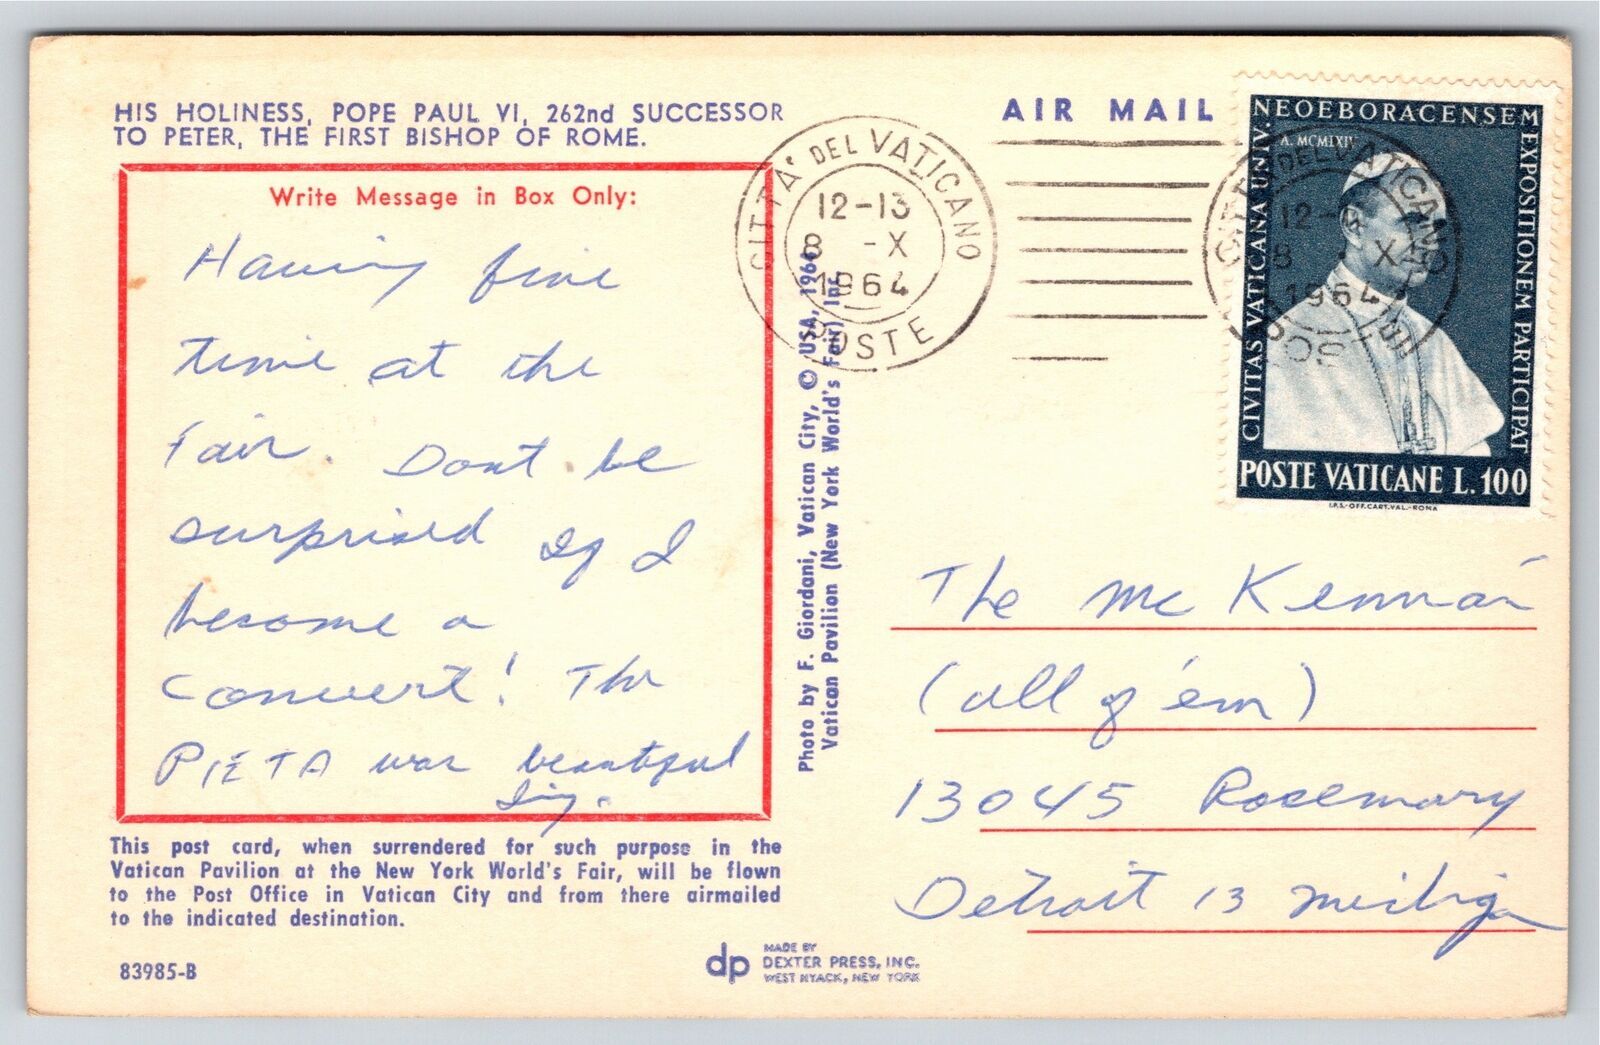 HIS HOLINESS, POPE PAUL VI, 262nd SUCCESSOR
TO PETER, THE FIRST BISHOP OF ROME.
Write Message in Box Only:
Having fine
time at the
Fair. Dont be
surprised if I
become a
Convert! The
PIETA was beautiful
This post card, when surrendered for such purpose in the
Vatican Pavilion at the New York World's Fair, will be flown
to the Post Office in Vatican City and from there airmailed
to the indicated destination.
83985-B
Photo by F. Giordani, Vatican City, © USA, 1964
Vatican Pavilion (New York World's Fair) Inc.
dp
MADE BY
DEXTER PRESS, INC.
WEST NYACK, NEW YORK
AIR MAIL
CITTA' DEL VATICANO
12-13
8 -X
1964
POSTE
CIVITAS VATICANA UNIV.
NEOEBORACENSEM
EXPOSITIONEM PARTICIPAT
A. MCMLXIV
POSTE VATICANE L. 100
I.P.S.-OFF.CART.VAL.-ROMA
CITTA' DEL VATICANO
12-
8 X
1964
The McKennan
(all of 'em)
13045 Rosemary
Detroit 13 Michigan